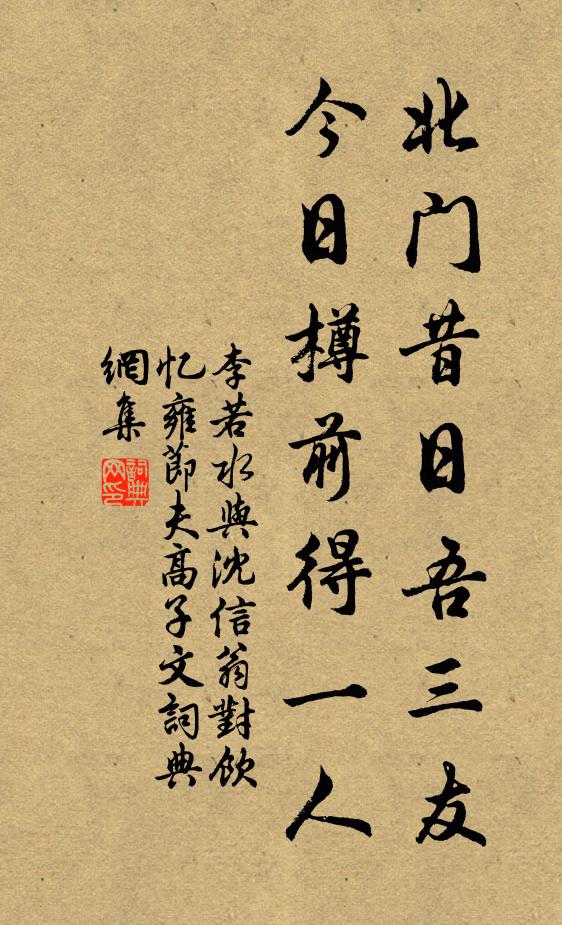 北门昔日吾三友
今日樽前得一人
李若水與沈信翁對飲
忆雍節夫高子文詞典
網集
詞典網印